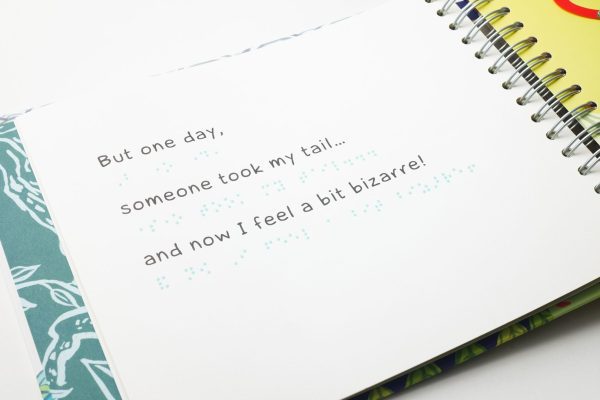 But one day,
someone took my tail...
and now I feel a bit bizarre!